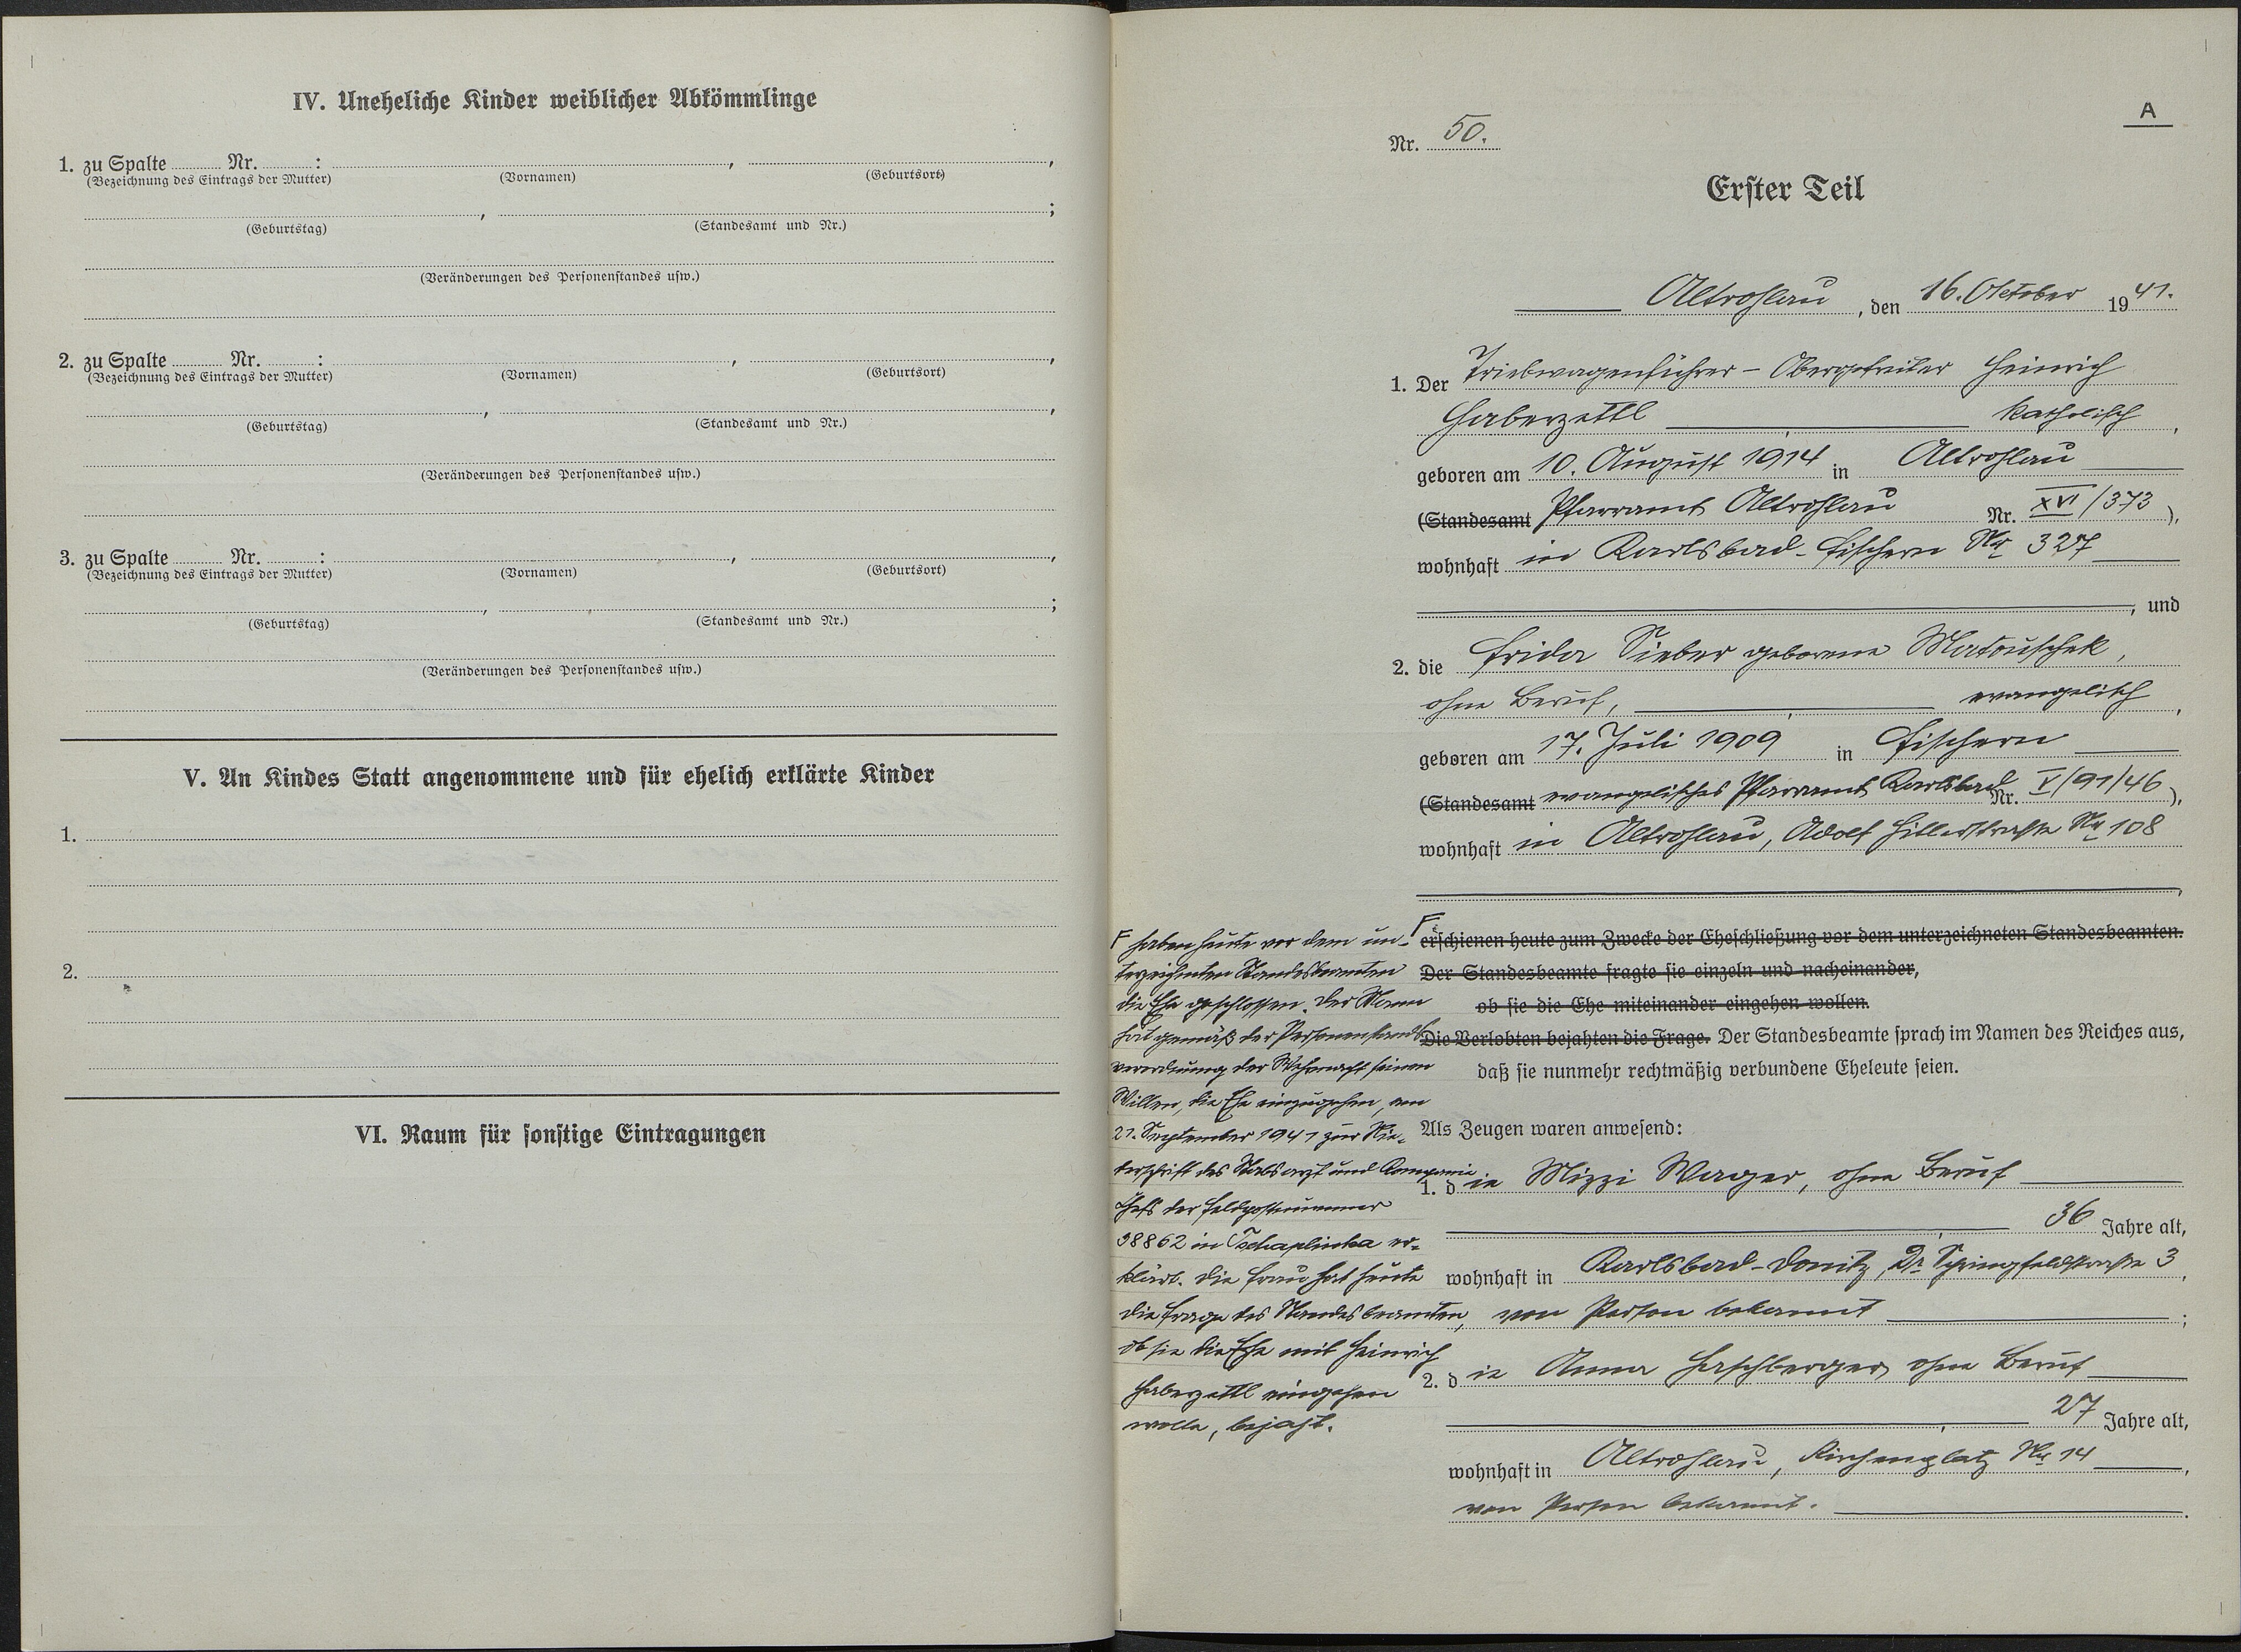 IV. Uneheliche Kinder weiblicher Abkömmlinge
1. zu Spalte Nr. : , ,
(Bezeichnung des Eintrags der Mutter) (Vornamen) (Geburtsort)
, ;
(Geburtstag) (Standesamt und Nr.)
(Veränderungen des Personenstandes usw.)
2. zu Spalte Nr. : , ,
(Bezeichnung des Eintrags der Mutter) (Vornamen) (Geburtsort)
, ,
(Geburtstag) (Standesamt und Nr.)
(Veränderungen des Personenstandes usw.)
3. zu Spalte Nr. : , ,
(Bezeichnung des Eintrags der Mutter) (Vornamen) (Geburtsort)
, ;
(Geburtstag) (Standesamt und Nr.)
(Veränderungen des Personenstandes usw.)
V. An Kindes Statt angenommene und für ehelich erklärte Kinder
1.
2.
VI. Raum für sonstige Eintragungen
A
Nr. 50.
Erster Teil
Altrohlau, den 16. Oktober 1941.
1. Der Triebwagenführer - Obergefreiter Heinrich
Haberzettl katholisch,
geboren am 10. August 1914 in Altrohlau
(Standesamt Pfarramt Altrohlau Nr. XVI/373),
wohnhaft in Karlsbad-Fischern Nr 327
, und
2. die Frida Sieber geborene Matouschek,
ohne Beruf, evangelisch,
geboren am 17. Juli 1909 in Fischern
(Standesamt evangelisches Pfarramt Karlsbad Nr. V/91/46),
wohnhaft in Altrohlau, Adolf Hitlerstraße Nr 108
,
F erschienen heute zum Zwecke der Eheschließung vor dem unterzeichneten Standesbeamten.
Der Standesbeamte fragte sie einzeln und nacheinander,
ob sie die Ehe miteinander eingehen wollen.
Die Verlobten bejahten die Frage. Der Standesbeamte sprach im Namen des Reiches aus,
daß sie nunmehr rechtmäßig verbundene Eheleute seien.
F haben heute vor dem un-
terzeichneten Standesbeamten
die Ehe geschlossen. Der Mann
hat gemäß der Personenstands
verordnung der Wehrmacht seinen
Willen, die Ehe einzugehen, am
21. September 1941 zur Nie-
derschrift des Stabsarzt und Kompanie
Chefs der Feldpostnummer
38862 in Tschaplinka er-
klärt. Die Frau hat heute
die Frage des Standesbeamten,
ob sie die Ehe mit Heinrich
Haberzettl eingehen
wolle, bejaht.
Als Zeugen waren anwesend:
1. die Mizzi Wager, ohne Beruf
, 36 Jahre alt,
wohnhaft in Karlsbad-Donitz, Dr. Springfeldstraße 3,
von Person bekannt ;
2. die Anna Haschberger, ohne Beruf
, 27 Jahre alt,
wohnhaft in Altrohlau, Kirchenplatz Nr 14,
von Person bekannt.